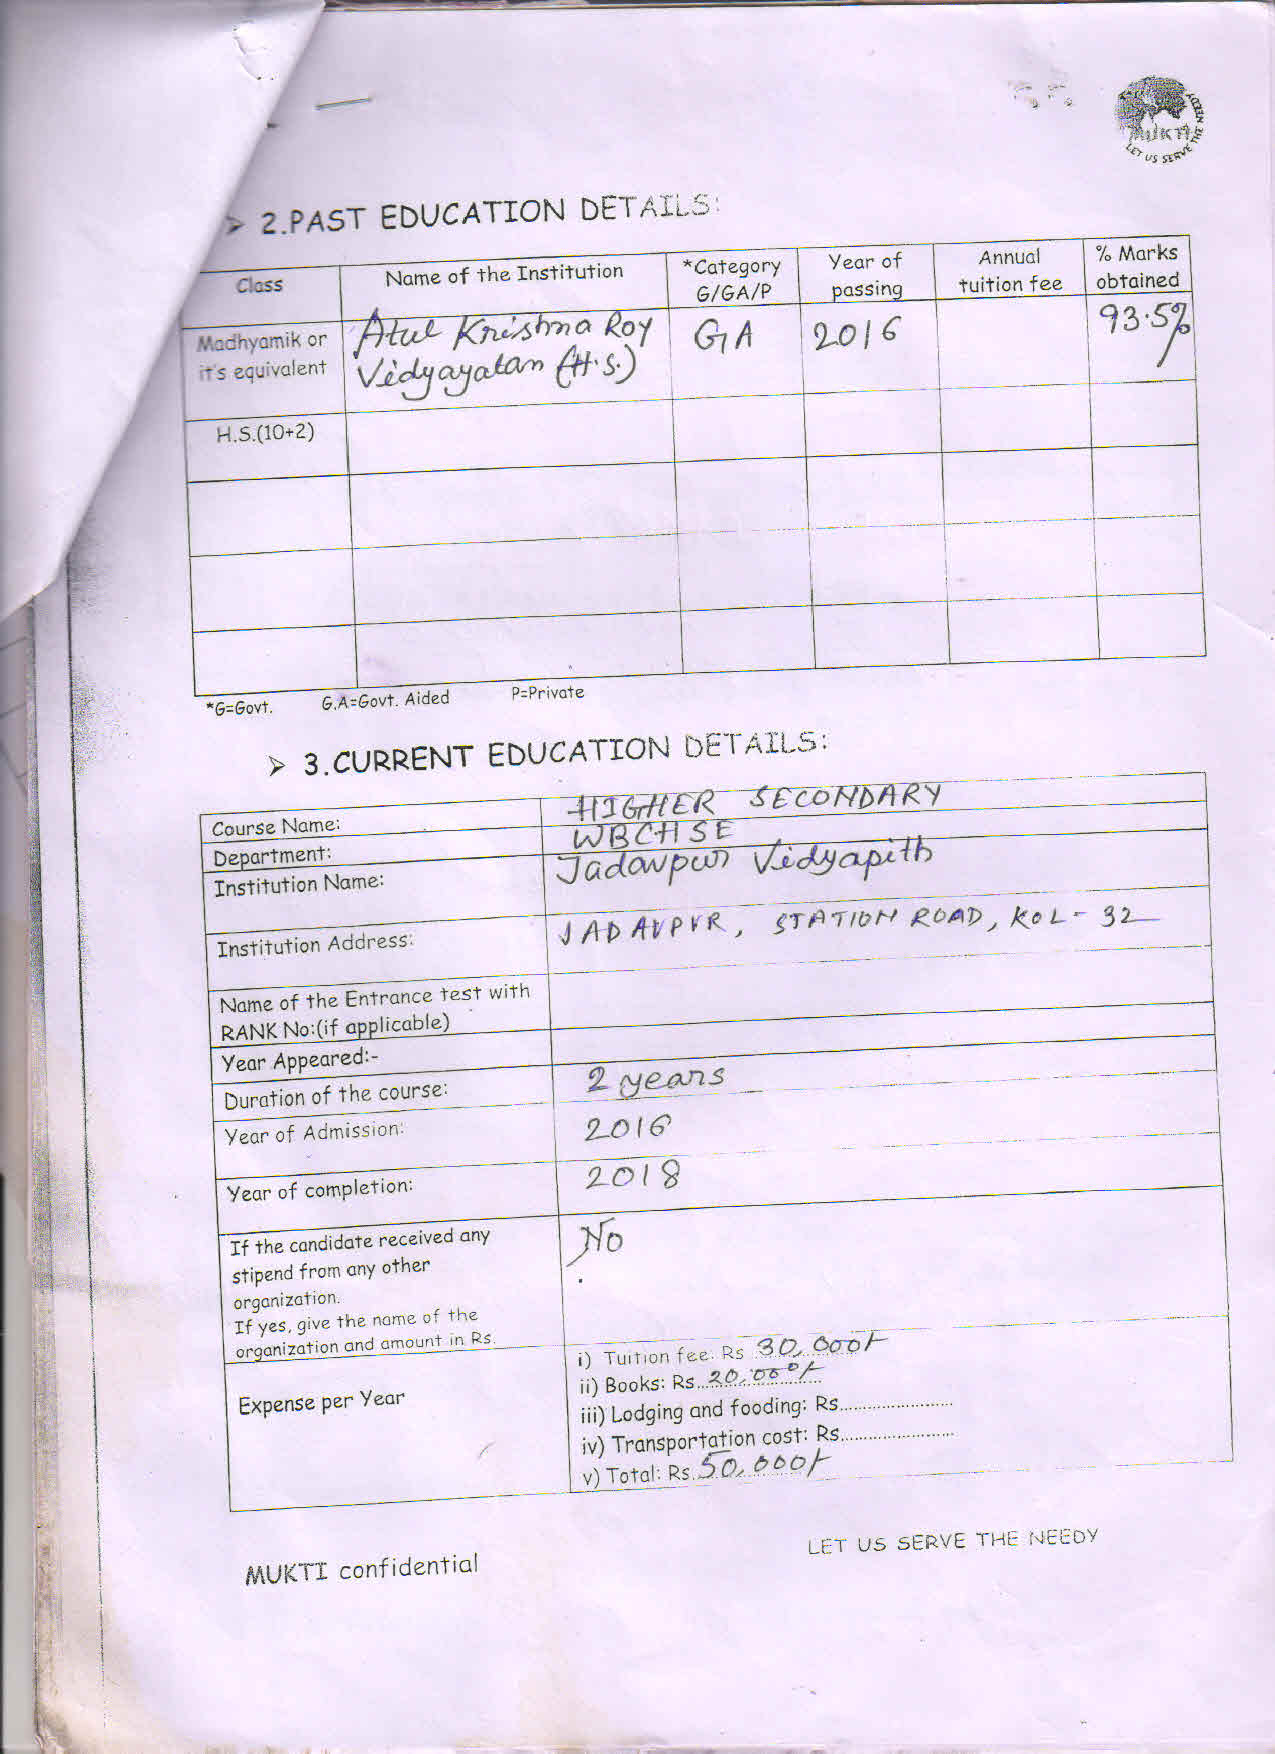 MUKTI
LET US SERVE THE NEEDY
➢ 2.PAST EDUCATION DETAILS:
Class Name of the Institution *Category G/GA/P Year of passing Annual tuition fee % Marks obtained
Madhyamik or it's equivalent Atul Krishna Roy Vidyayatan (H.S.) GA 2016 93.5%
H.S.(10+2)
*G=Govt. G.A=Govt. Aided P=Private
➢ 3.CURRENT EDUCATION DETAILS:
Course Name: HIGHER SECONDARY
Department: WBCHSE
Institution Name: Jadavpur Vidyapith
Institution Address: JADAVPUR, STATION ROAD, KOL - 32
Name of the Entrance test with
RANK No:(if applicable)
Year Appeared:-
Duration of the course: 2 years
Year of Admission: 2016
Year of completion: 2018
If the candidate received any No
stipend from any other
organization.
If yes, give the name of the
organization and amount in Rs.
Expense per Year
i) Tuition fee: Rs 30,000/-
ii) Books: Rs...20,000/-
iii) Lodging and fooding: Rs.......................
iv) Transportation cost: Rs.......................
v) Total: Rs. 50,000/-
MUKTI confidential
LET US SERVE THE NEEDY